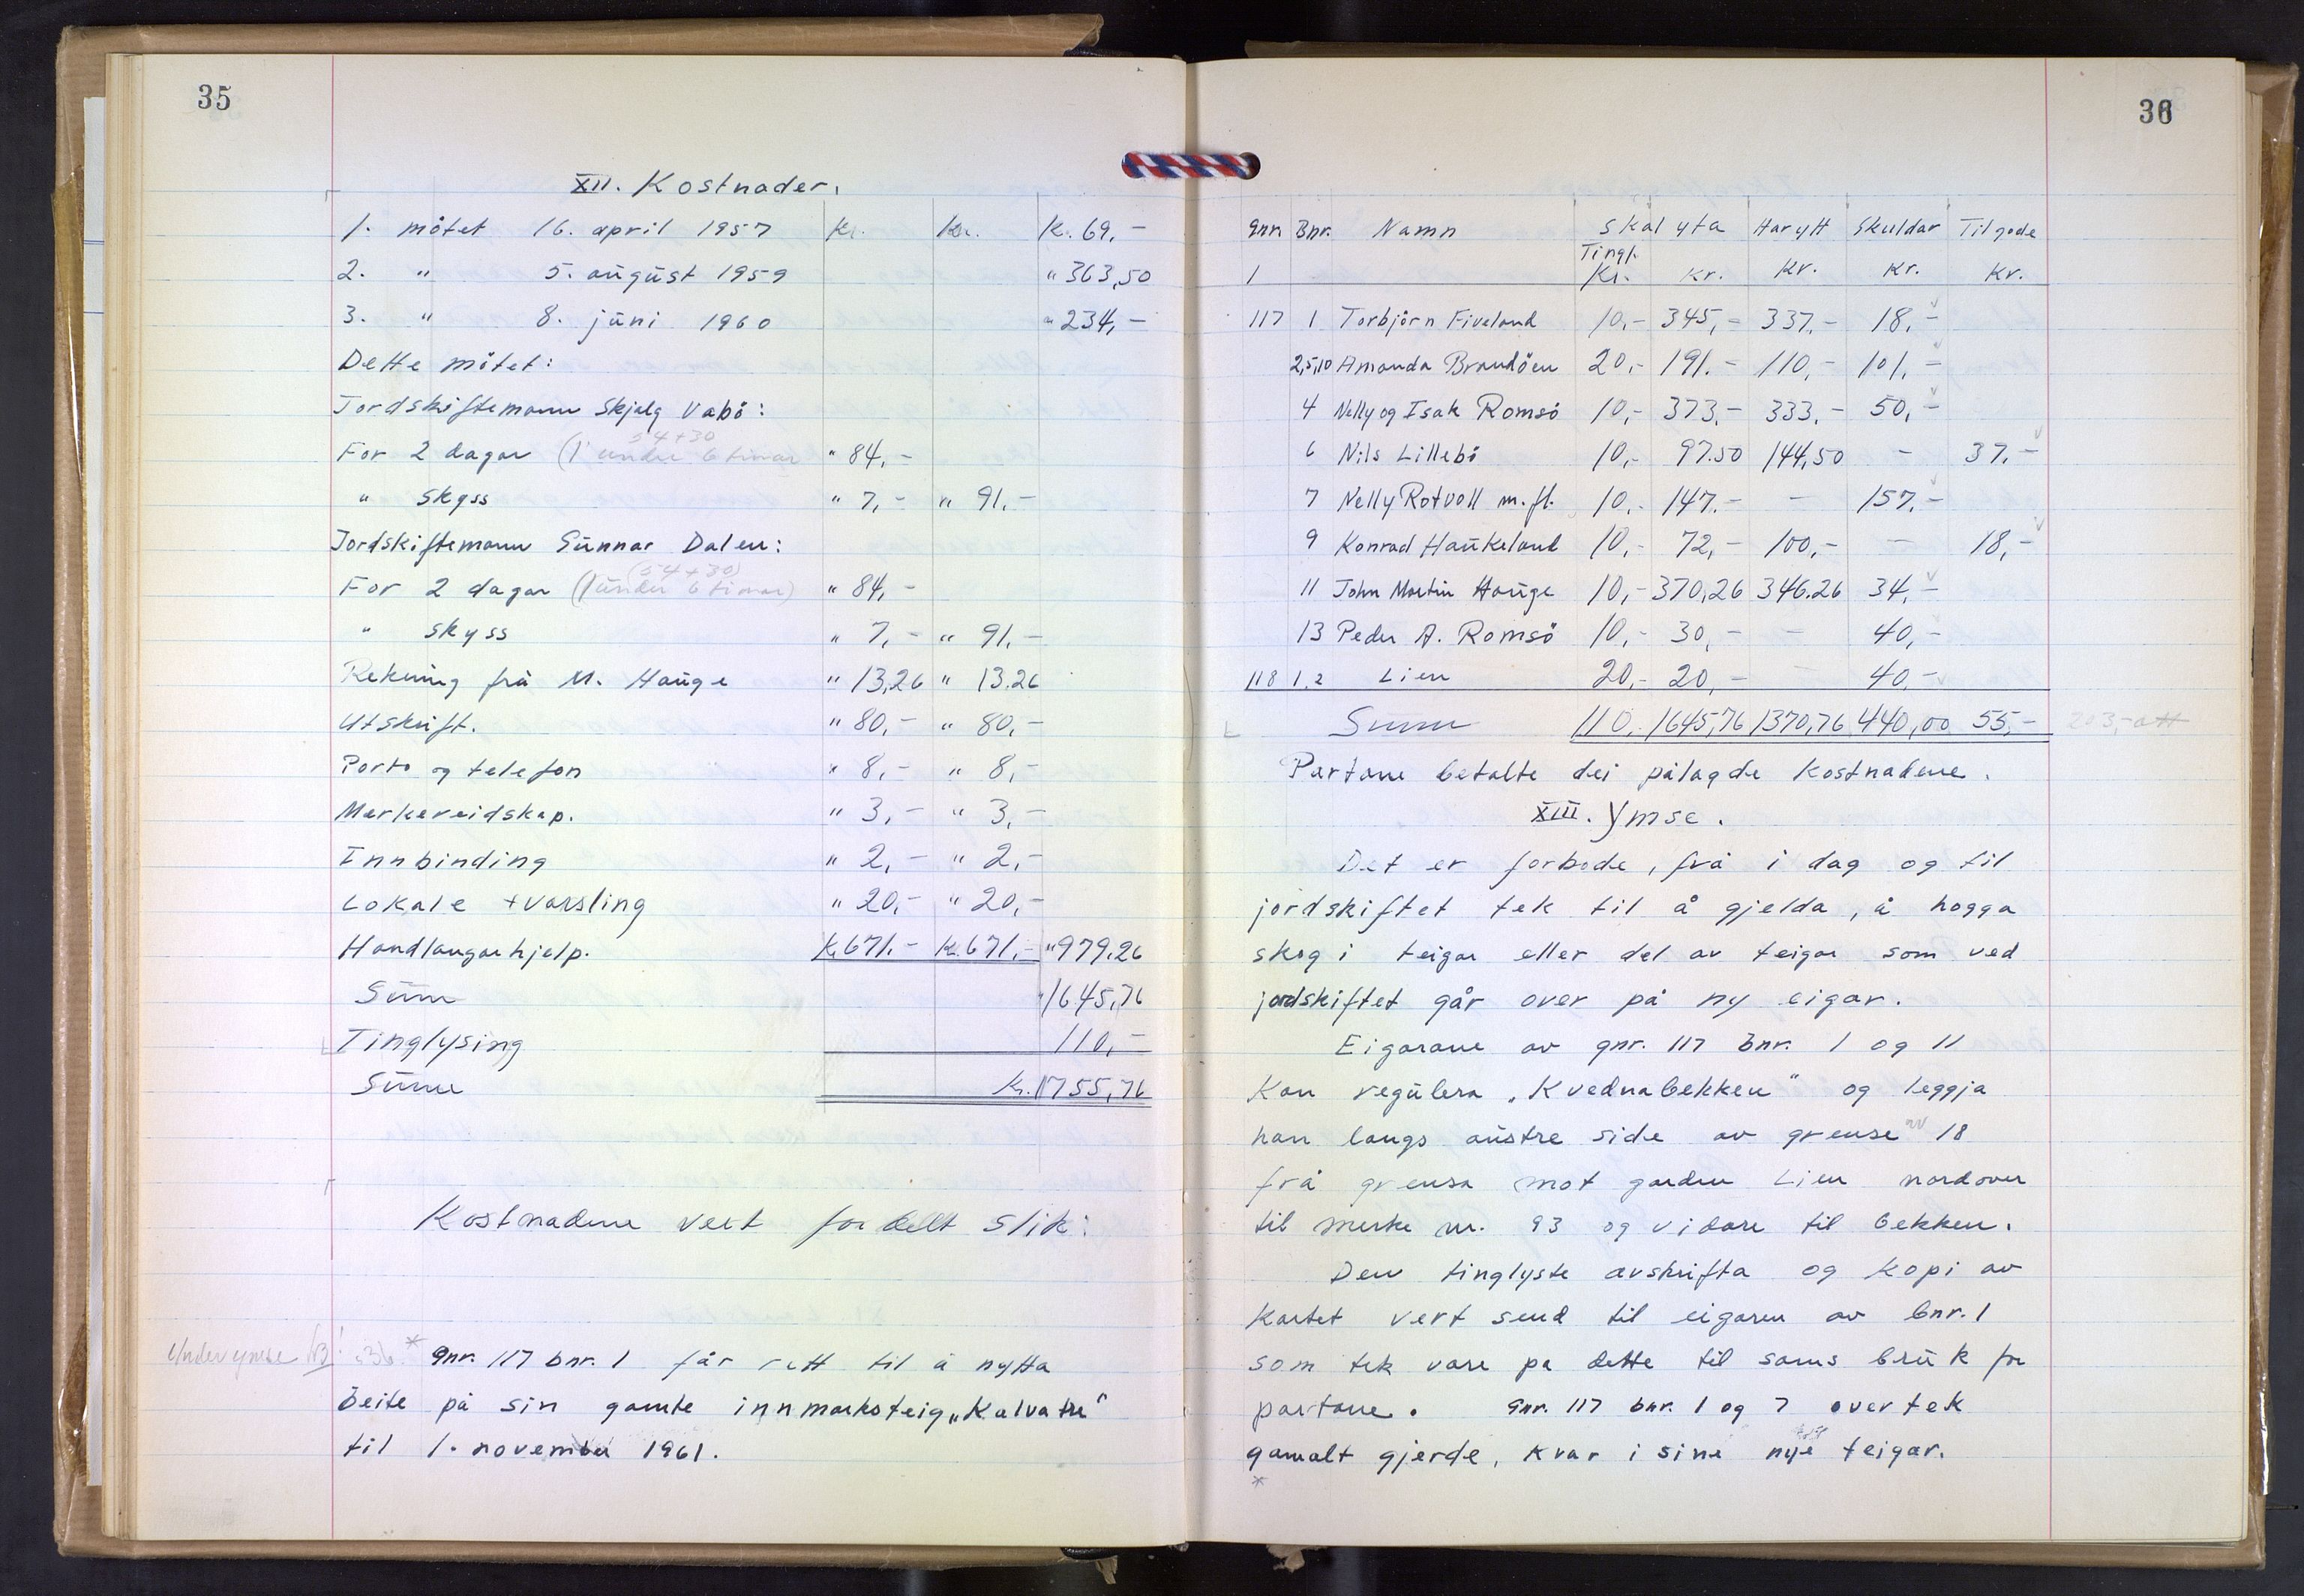 35
XII. Kostnader.
1. møtet 16. april 1957 Kr. Kr. Kr. 69,-
2. " 5. august 1959 " 363,50
3. " 8. juni 1960 " 234,-
Dette møtet:
Jordskiftemann Skjalg Vabø:
54+30
For 2 dagar (1 under 6 timar " 84,-
" skyss " 7,- " 91,-
Jordskiftemann Gunnar Dalen:
(54+30)
For 2 dagar (1 under 6 timar) " 84,-
" skyss " 7,- " 91,-
Rekning frå M. Hauge " 13,26 " 13.26
Utskrift. " 80,- " 80,-
Porto og telefon " 8,- " 8,-
Merkereidskap. " 3,- " 3,-
Innbinding " 2,- " 2,-
Lokale + varsling " 20,- " 20,-
Handlangarhjelp. Kr. 671.- Kr. 671.- " 979.26
Sum 1645,76
Tinglysing 110,-
Sum Kr. 1755,76
Kostnadene vert fordelt slik:
Under ymse
* gnr. 117 bnr. 1 får rett til å nytta
beite på sin gamle innmarksteig "Kalvatre"
til 1. november 1961.
36
gnr. Bnr. Namn Skal yta Har ytt Skuldar Tilgode
Tingl.
1 Kr. Kr. Kr. Kr. Kr.
117 1 Torbjørn Fiveland 10,- 345,- 337,- 18,-
2,5,10 Amanda Brandøen 20,- 191.- 110,- 101,-
4 Nelly og Isak Romsø 10,- 373,- 333,- 50,-
6 Nils Lillebø 10,- 97.50 144,50 - 37,-
7 Nelly Rotvoll m.fl. 10,- 147.- - 157,-
9 Konrad Haukeland 10,- 72,- 100,- - 18,-
11 John Martin Hauge 10,- 370,26 346.26 34,-
13 Peder A. Romsø 10,- 30,- - 40,-
118 1,2 Lien 20,- 20,- - 40,-
Sum 110,- 1645,76 1370,76 440,00 55,-
Partane betalte dei pålagde kostnadene.
XIII. Ymse.
Det er forbode, frå i dag og til
jordskiftet tek til å gjelda, å hogga
skog i teigar eller del av teigar som ved
jordskiftet går over på ny eigar.
Eigarane av gnr. 117 bnr. 1 og 11
kan regulera „Kvednabekken" og leggja
han langs austre side av grense nr 18
frå grensa mot garden Lien nordover
til merke nr. 93 og vidare til bekken.
Den tinglyste avskrifta og kopi av
kartet vert send til eigaren av bnr. 1
som tek vare på dette til sams bruk for
partane. gnr. 117 bnr. 1 og 7 overtek
gamalt gjerde, kvar i sine nye teigar.
*